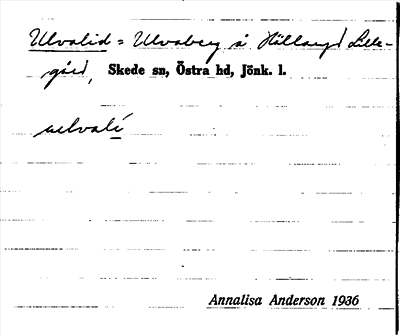 Ulvalid = Ulvaberg å Hållanryd Lille-
gård, Skede sn, Östra hd, Jönk. l.
ulvalí
Annalisa Anderson 1936